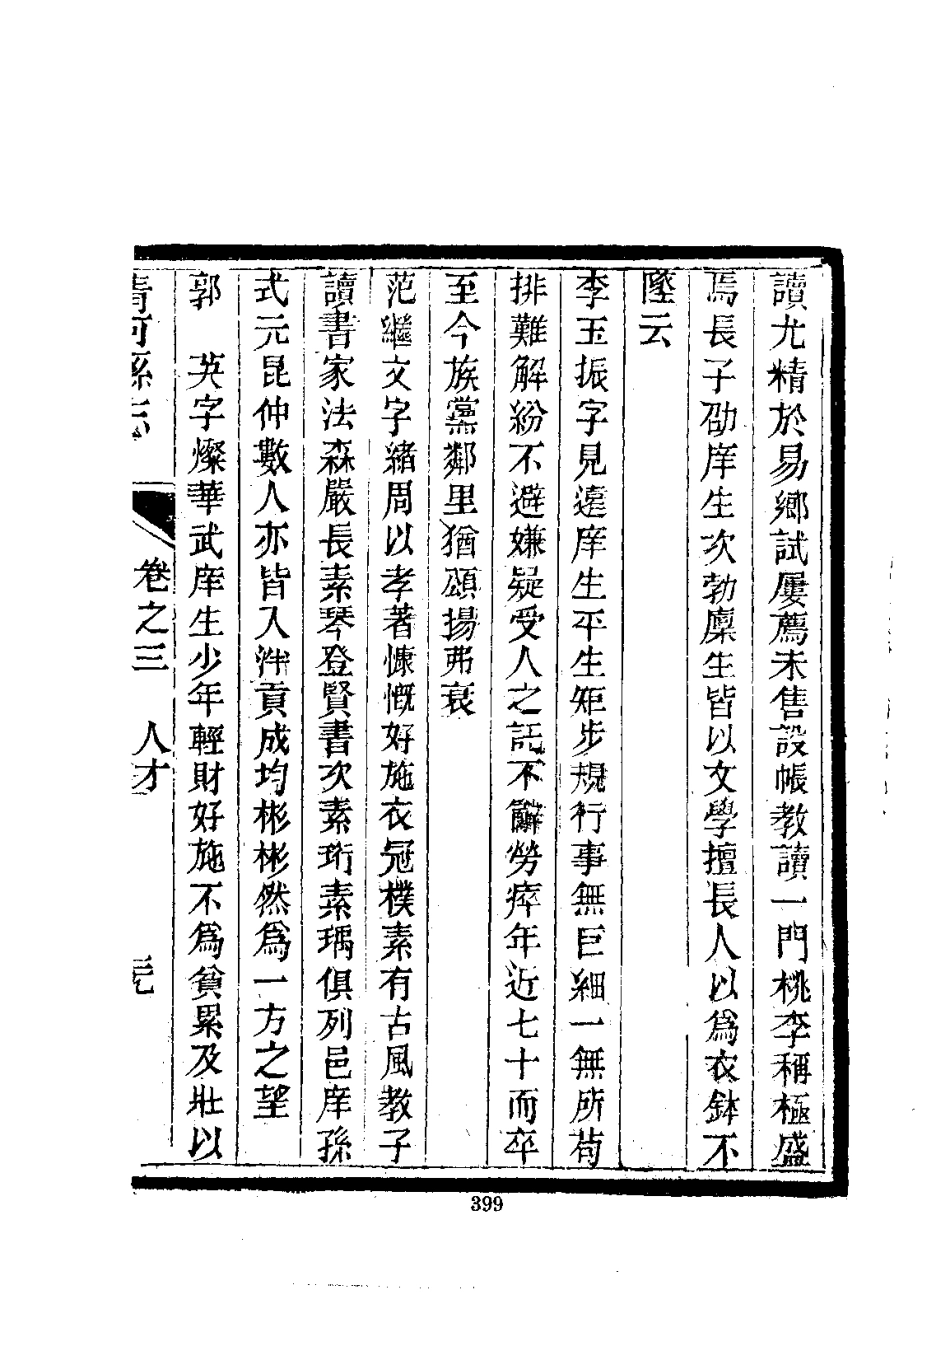 讀尤精於易鄉試屢薦未售設帳教讀一門桃李稱極盛
焉長子劭庠生次勃廩生皆以文學擅長人以爲衣鉢不
墜云
李玉振字見遠庠生平生矩步規行事無巨細一無所苟
排難解紛不避嫌疑受人之託不辭勞瘁年近七十而卒
至今族黨鄰里猶頌揚弗衰
范繼文字緒周以孝著慷慨好施衣冠樸素有古風教子
讀書家法森嚴長素琴登賢書次素珩素瑀俱列邑庠孫
式元昆仲數人亦皆入泮貢成均彬彬然爲一方之望
郭　英字燦華武庠生少年輕財好施不爲貧累及壯以
清河縣志　卷之三　人才　元
399